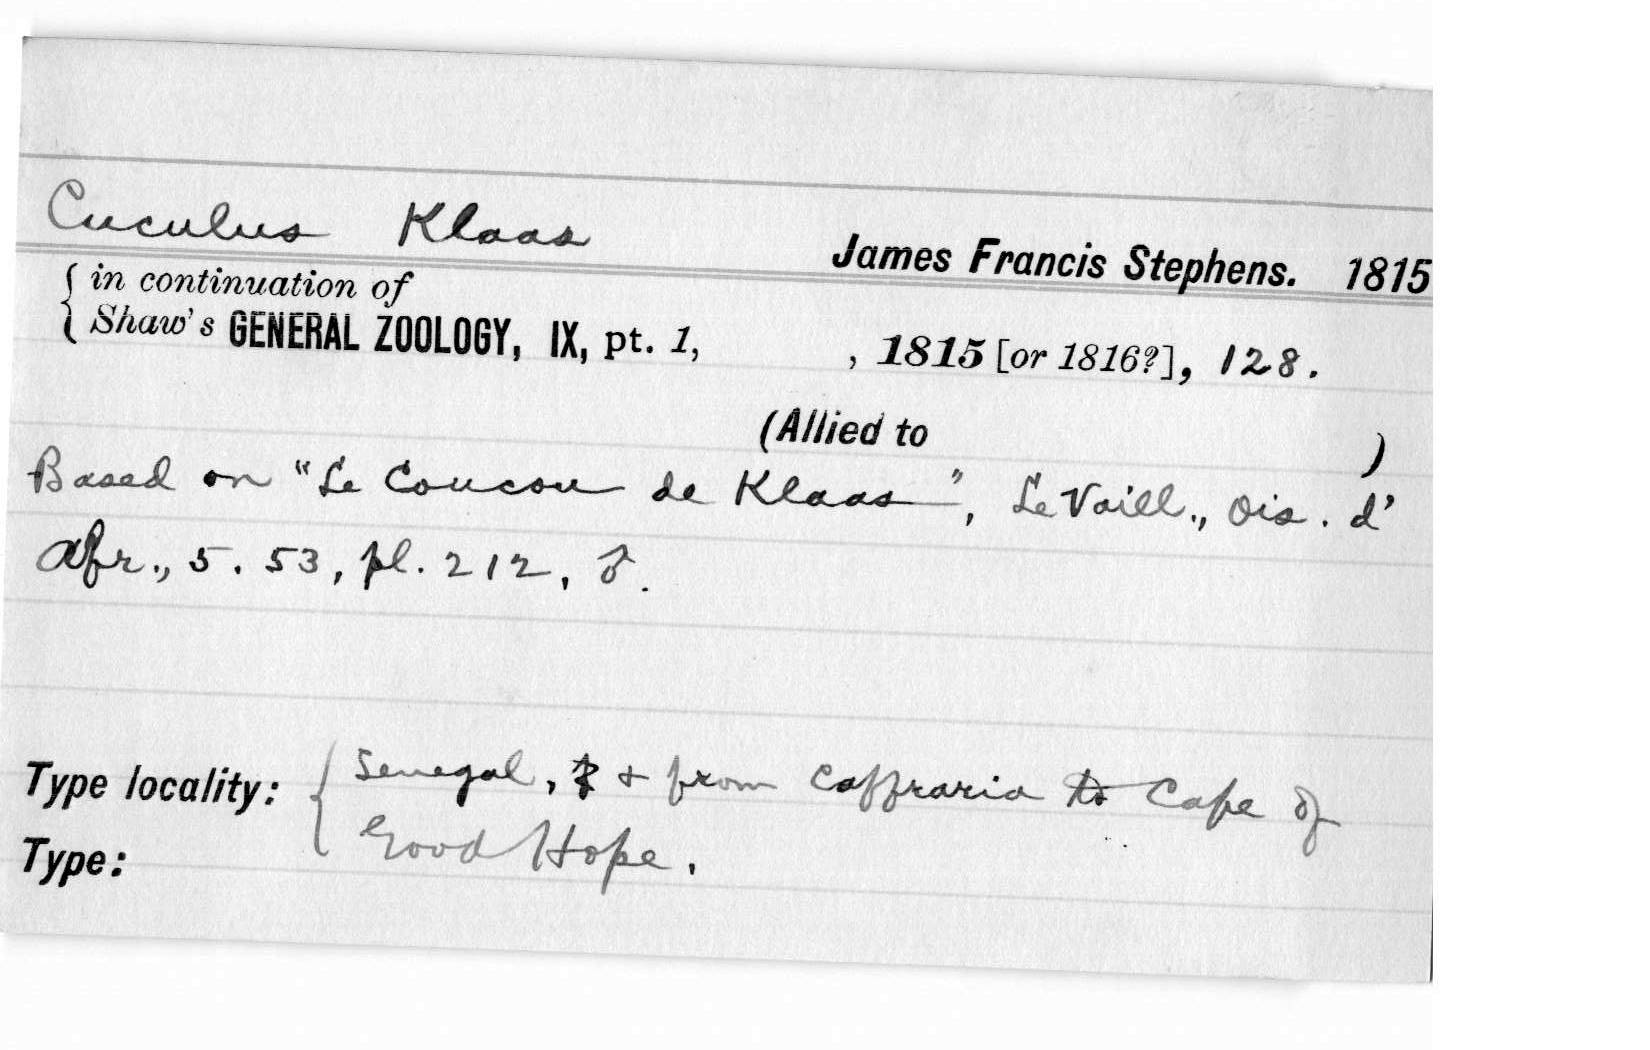 Cuculus Klaas
James Francis Stephens. 1815
in continuation of
Shaw's GENERAL ZOOLOGY, IX, pt. 1, , 1815 [or 1816?], 128.
(Allied to )
Based on "Le Coucou de Klaas", Le Vaill., Ois. d'
Afr., 5. 53, pl. 212, ♂.
Type locality: Senegal, + from Caffraria to Cape of
Good Hope.
Type: